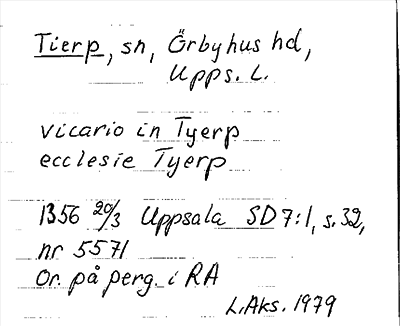 Tierp, sn, Örbyhus hd,
Upps. L.
vicario in Tyerp
ecclesie Tyerp
1356 20/3 Uppsala SD 7:1, s. 32,
nr 5571
Or. på perg. i RA
L.Aks. 1979